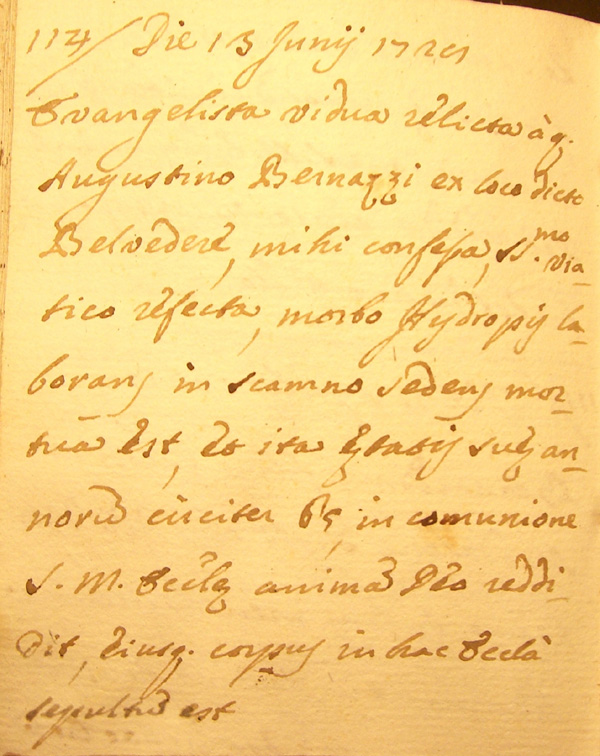 114/ Die 13 Junij 1721
Evangelista vidua relicta à q.
Augustino Bernazzi ex loco dicto
Belvedere, mihi confessa, SS.mo Via-
tico refecta, morbo Hydropis la-
borans in scamno sedens mor-
tua est, et ita ętatis suę an-
norū circiter 65, in comunione
S. M. Eccle animā Deo reddi-
dit, eiusq. corpus in hac Ecclâ
sepultū est